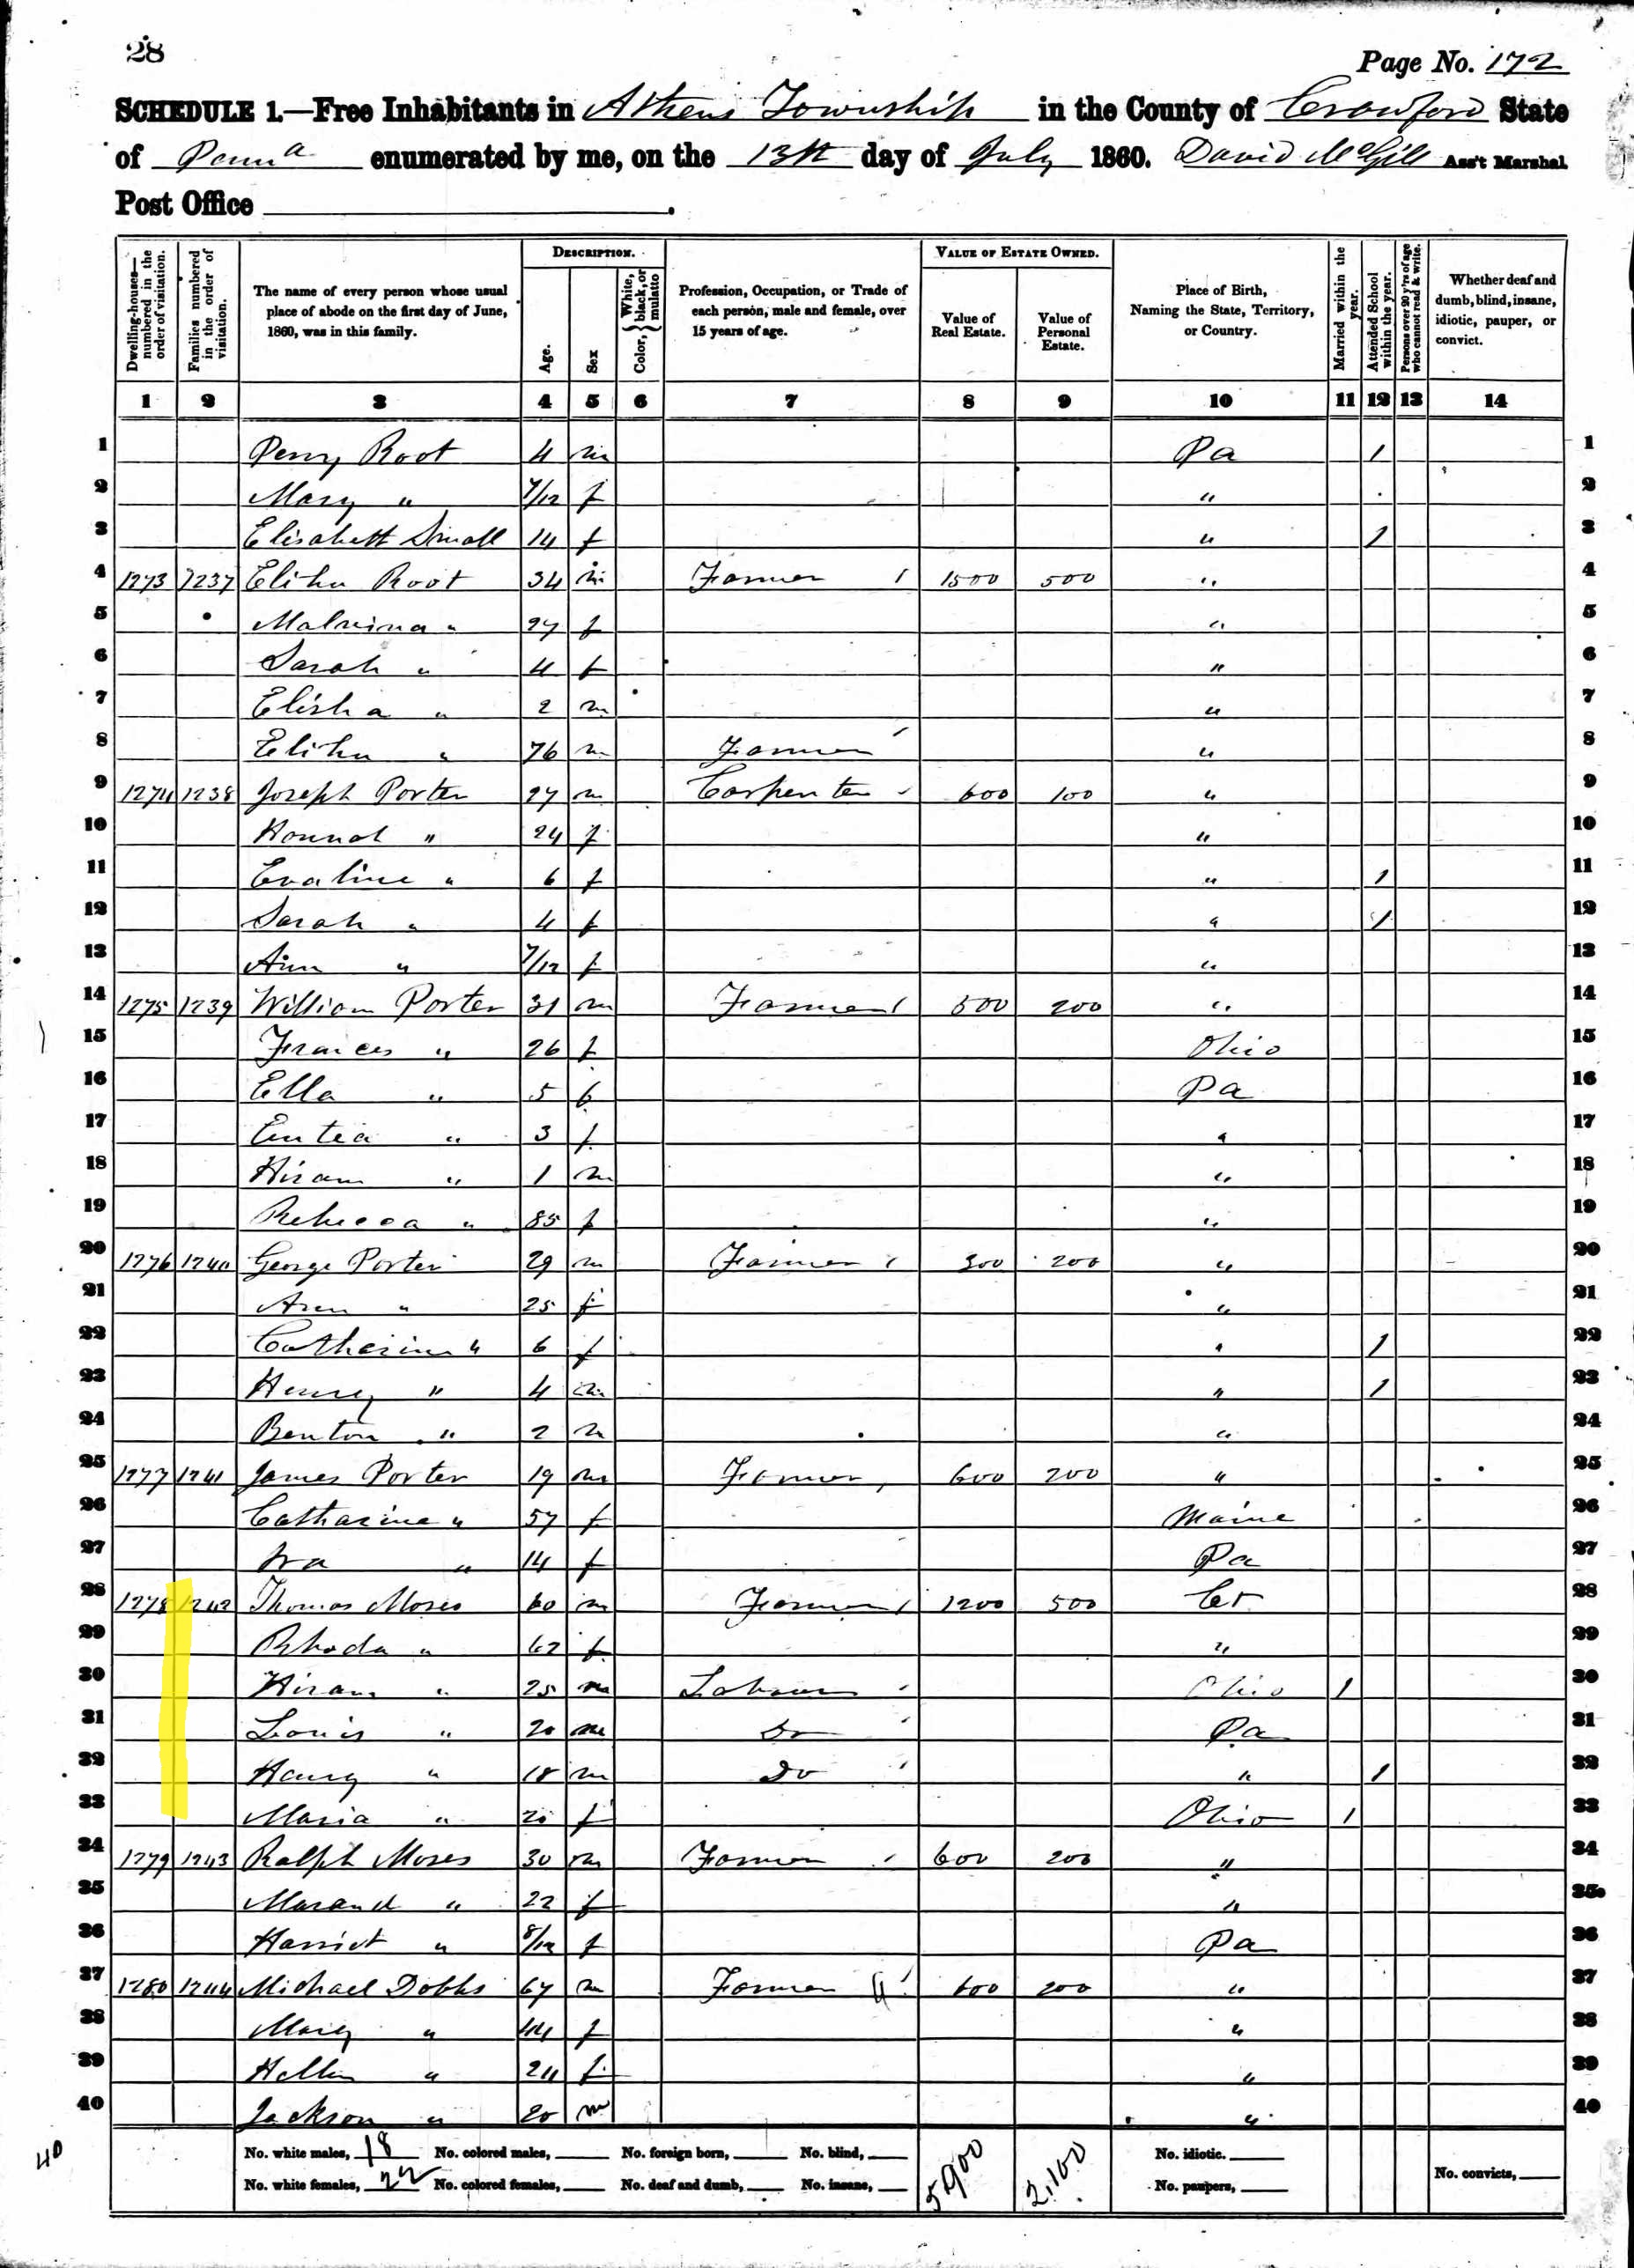 28
Page No. 172
SCHEDULE 1.—Free Inhabitants in Athens Township in the County of Crawford State
of Penna enumerated by me, on the 13th day of July 1860. David McGill Ass't Marshal
Post Office
Dwelling-houses—numbered in the order of visitation. Families numbered in the order of visitation. The name of every person whose usual place of abode on the first day of June, 1860, was in this family. DESCRIPTION. Age. Sex Color, White, black, or mulatto Profession, Occupation, or Trade of each person, male and female, over 15 years of age. VALUE OF ESTATE OWNED. Value of Real Estate. Value of Personal Estate. Place of Birth, Naming the State, Territory, or Country. Married within the year. Attended School within the year. Persons over 20 y'rs of age who cannot read & write. Whether deaf and dumb, blind, insane, idiotic, pauper, or convict.
1 2 3 4 5 6 7 8 9 10 11 12 13 14
1 Perry Root 4 m Pa 1 1
2 Mary " 7/12 f " 2
3 Elisabett Small 14 f " 1 3
4 1273 1237 Elihu Root 34 m Farmer 1 1500 500 " 4
5 Malvina " 27 f " 5
6 Sarah " 4 f " 6
7 Elisha " 2 m " 7
8 Elihu " 76 m Farmer " 8
9 1274 1238 Joseph Porter 27 m Carpenter 600 100 " 9
10 Hannah " 24 f " 10
11 Evaline " 6 f " 1 11
12 Sarah " 4 f " 1 12
13 Ann " 7/12 f " 13
14 1275 1239 William Porter 31 m Farmer 1 500 200 " 14
15 Frances " 26 f Ohio 15
16 Ella " 5 f Pa 16
17 " 3 f " 17
18 Hiram " 1 m " 18
19 Rebecca " 85 f " 19
20 1276 1240 George Porter 29 m Farmer 300 200 " 20
21 Ann " 25 f " 21
22 Catharine " 6 f " 1 22
23 Henry " 4 m " 1 23
24 Benton " 2 m " 24
25 1277 1241 James Porter 19 m Farmer 600 200 " 25
26 Catharine " 57 f Maine 26
27 Ira " 14 f Pa 27
28 1278 1242 Thomas Moses 60 m Farmer 1 1200 500 Ct 28
29 Rhoda " 62 f " 29
30 Hiram " 25 m Laborer Ohio 1 30
31 Louis " 20 m Do Pa 31
32 Henry " 18 m Do " 1 32
33 Maria " 20 f Ohio 1 33
34 1279 1243 Ralph Moses 30 m Farmer 600 200 " 34
35 " 22 f " 35
36 Harriet " 8/12 f Pa 36
37 1280 1244 Michael Dobbs 67 m Farmer 600 200 " 37
38 Mary " 44 f " 38
39 Hellen " 24 f " 39
40 Jackson " 20 m " 40
40 No. white males, 18 No. colored males, No. foreign born, No. blind, 5900 2,100 No. idiotic.
No. white females, 22 No. colored females, No. deaf and dumb, No. insane, No. paupers, No. convicts,